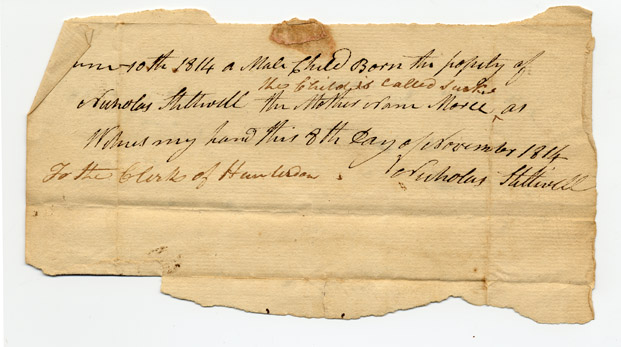 10th 1814 a Male Child Born the popity of
the Child is called
Nicholas Stillwell the Mother Nam as
Witnes my hand this 8th Day of November 1814
To the Clerk of Hunterdon Nicholas Stillwell